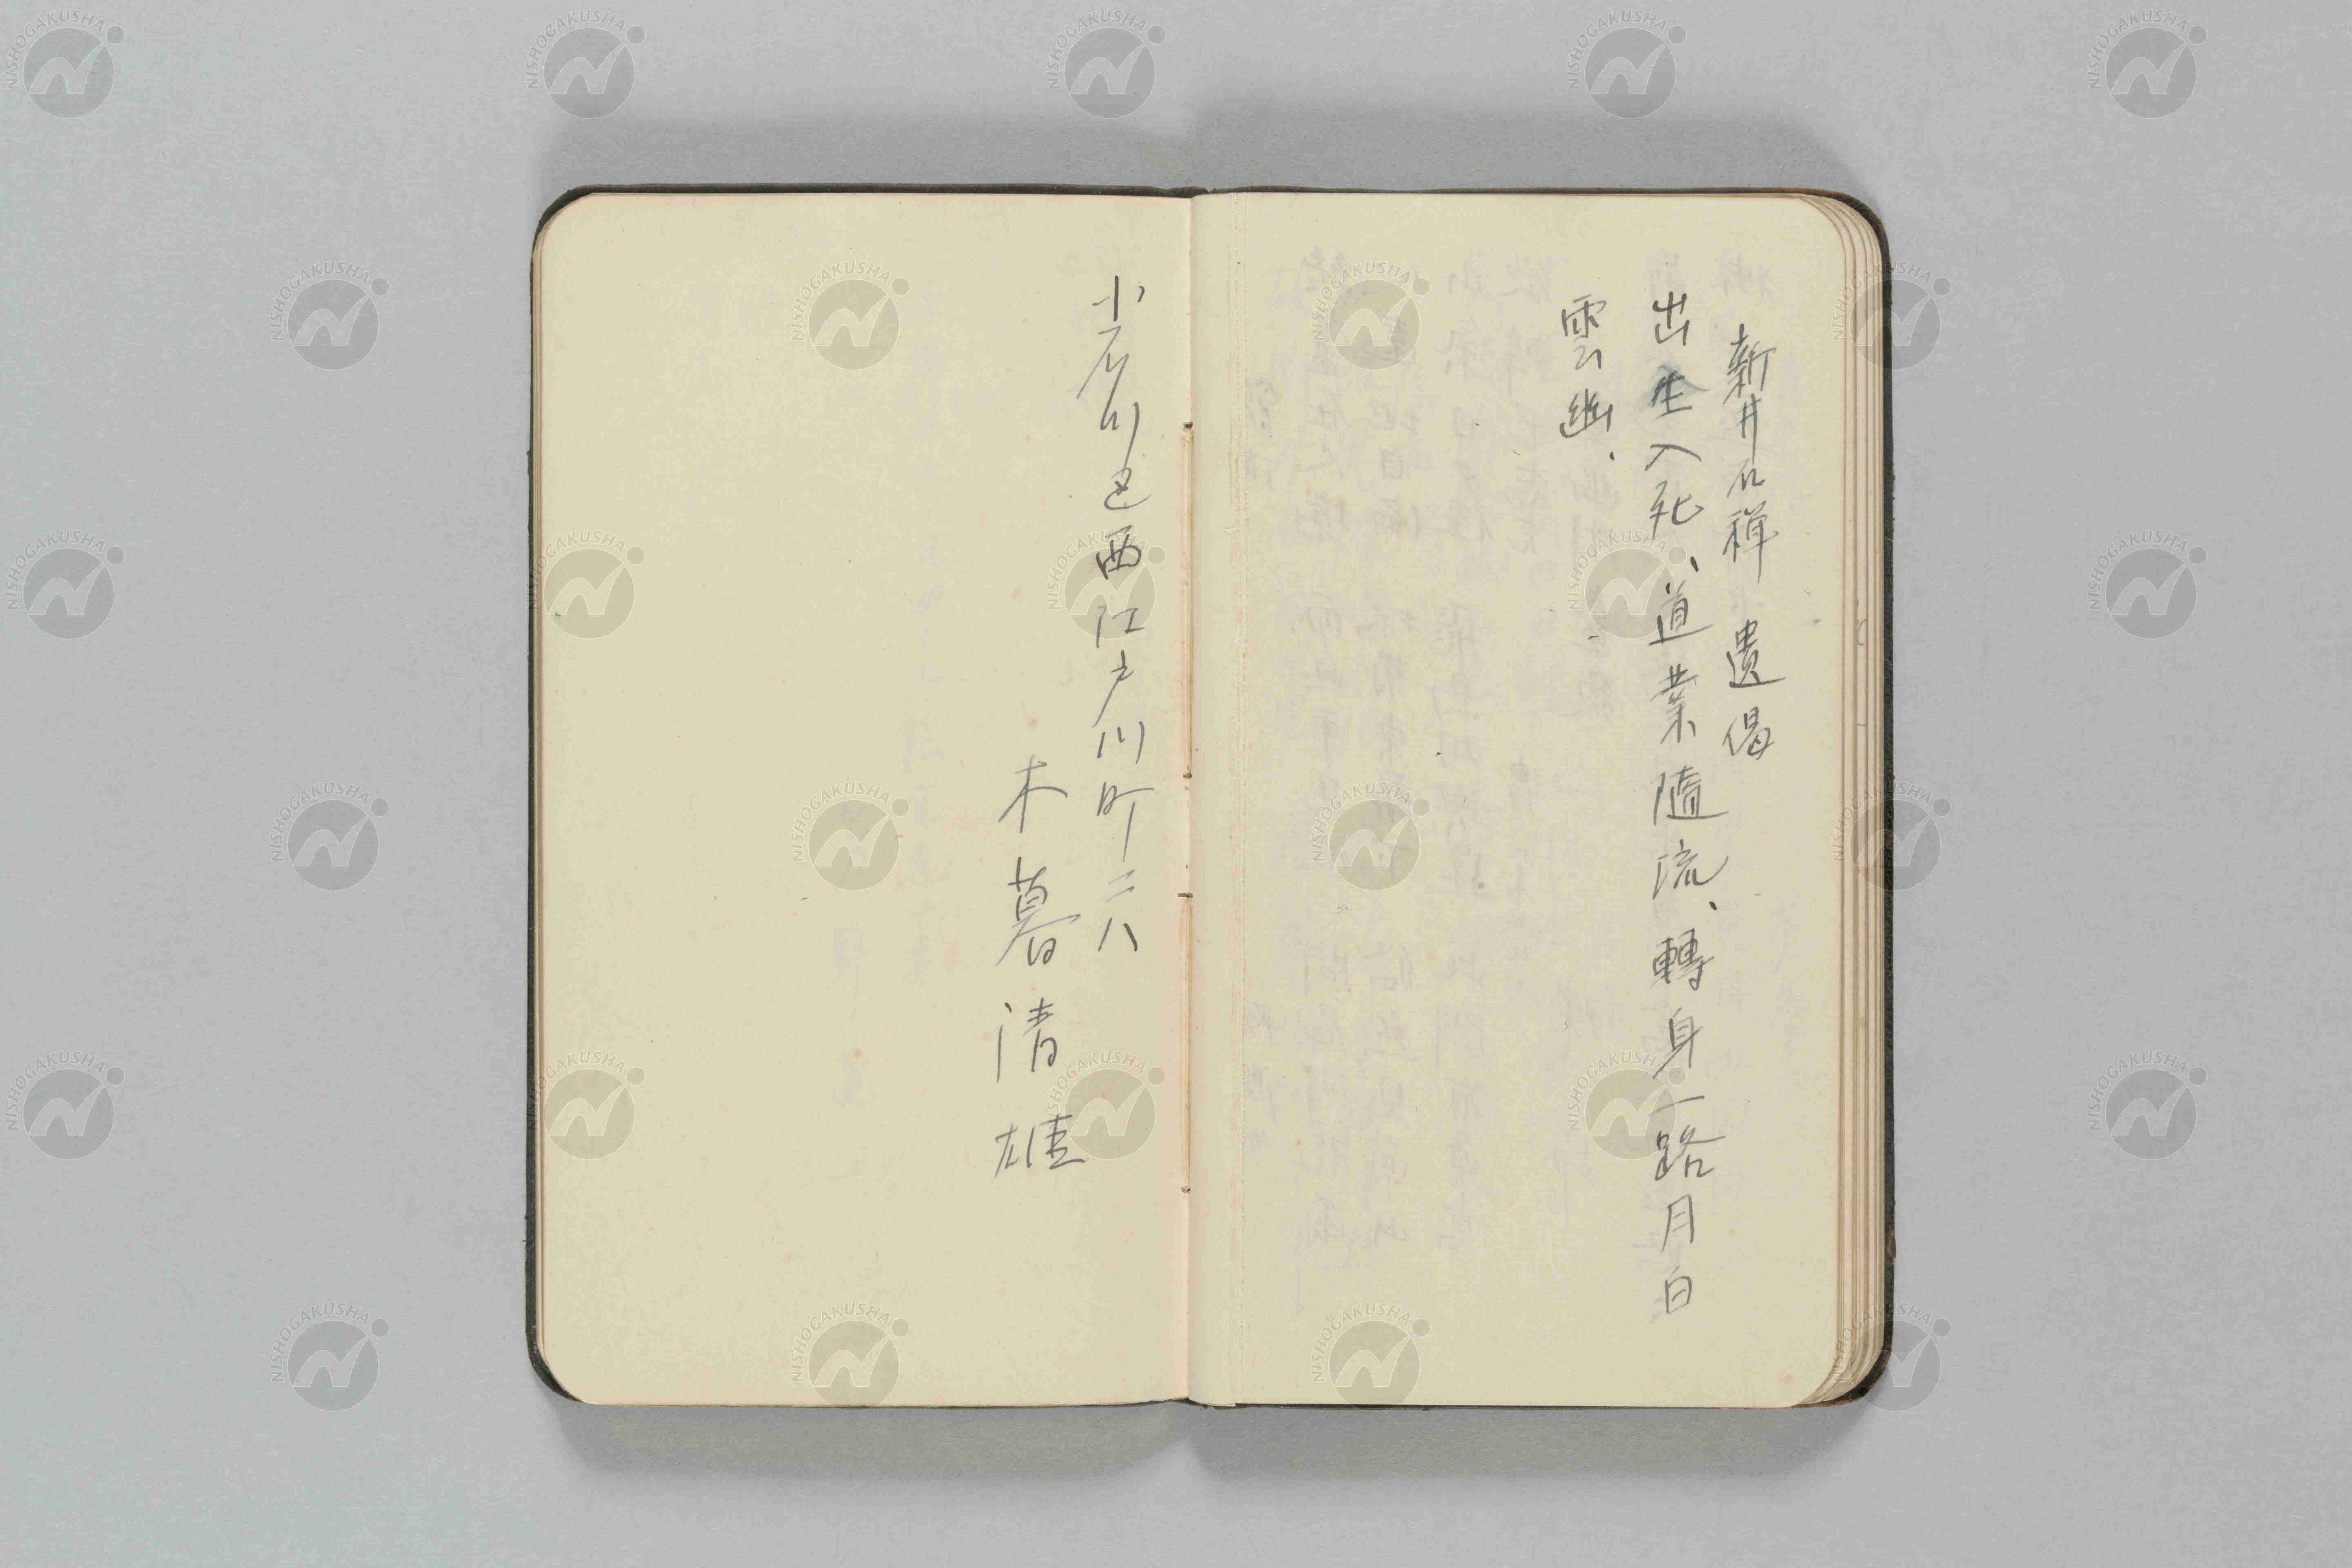 新井石禅 遺偈
出生入死、道業隨流、轉身一路月白
雲幽.
小石川区西江戸川町二八
木暮清雄
NISHOGAKUSHA